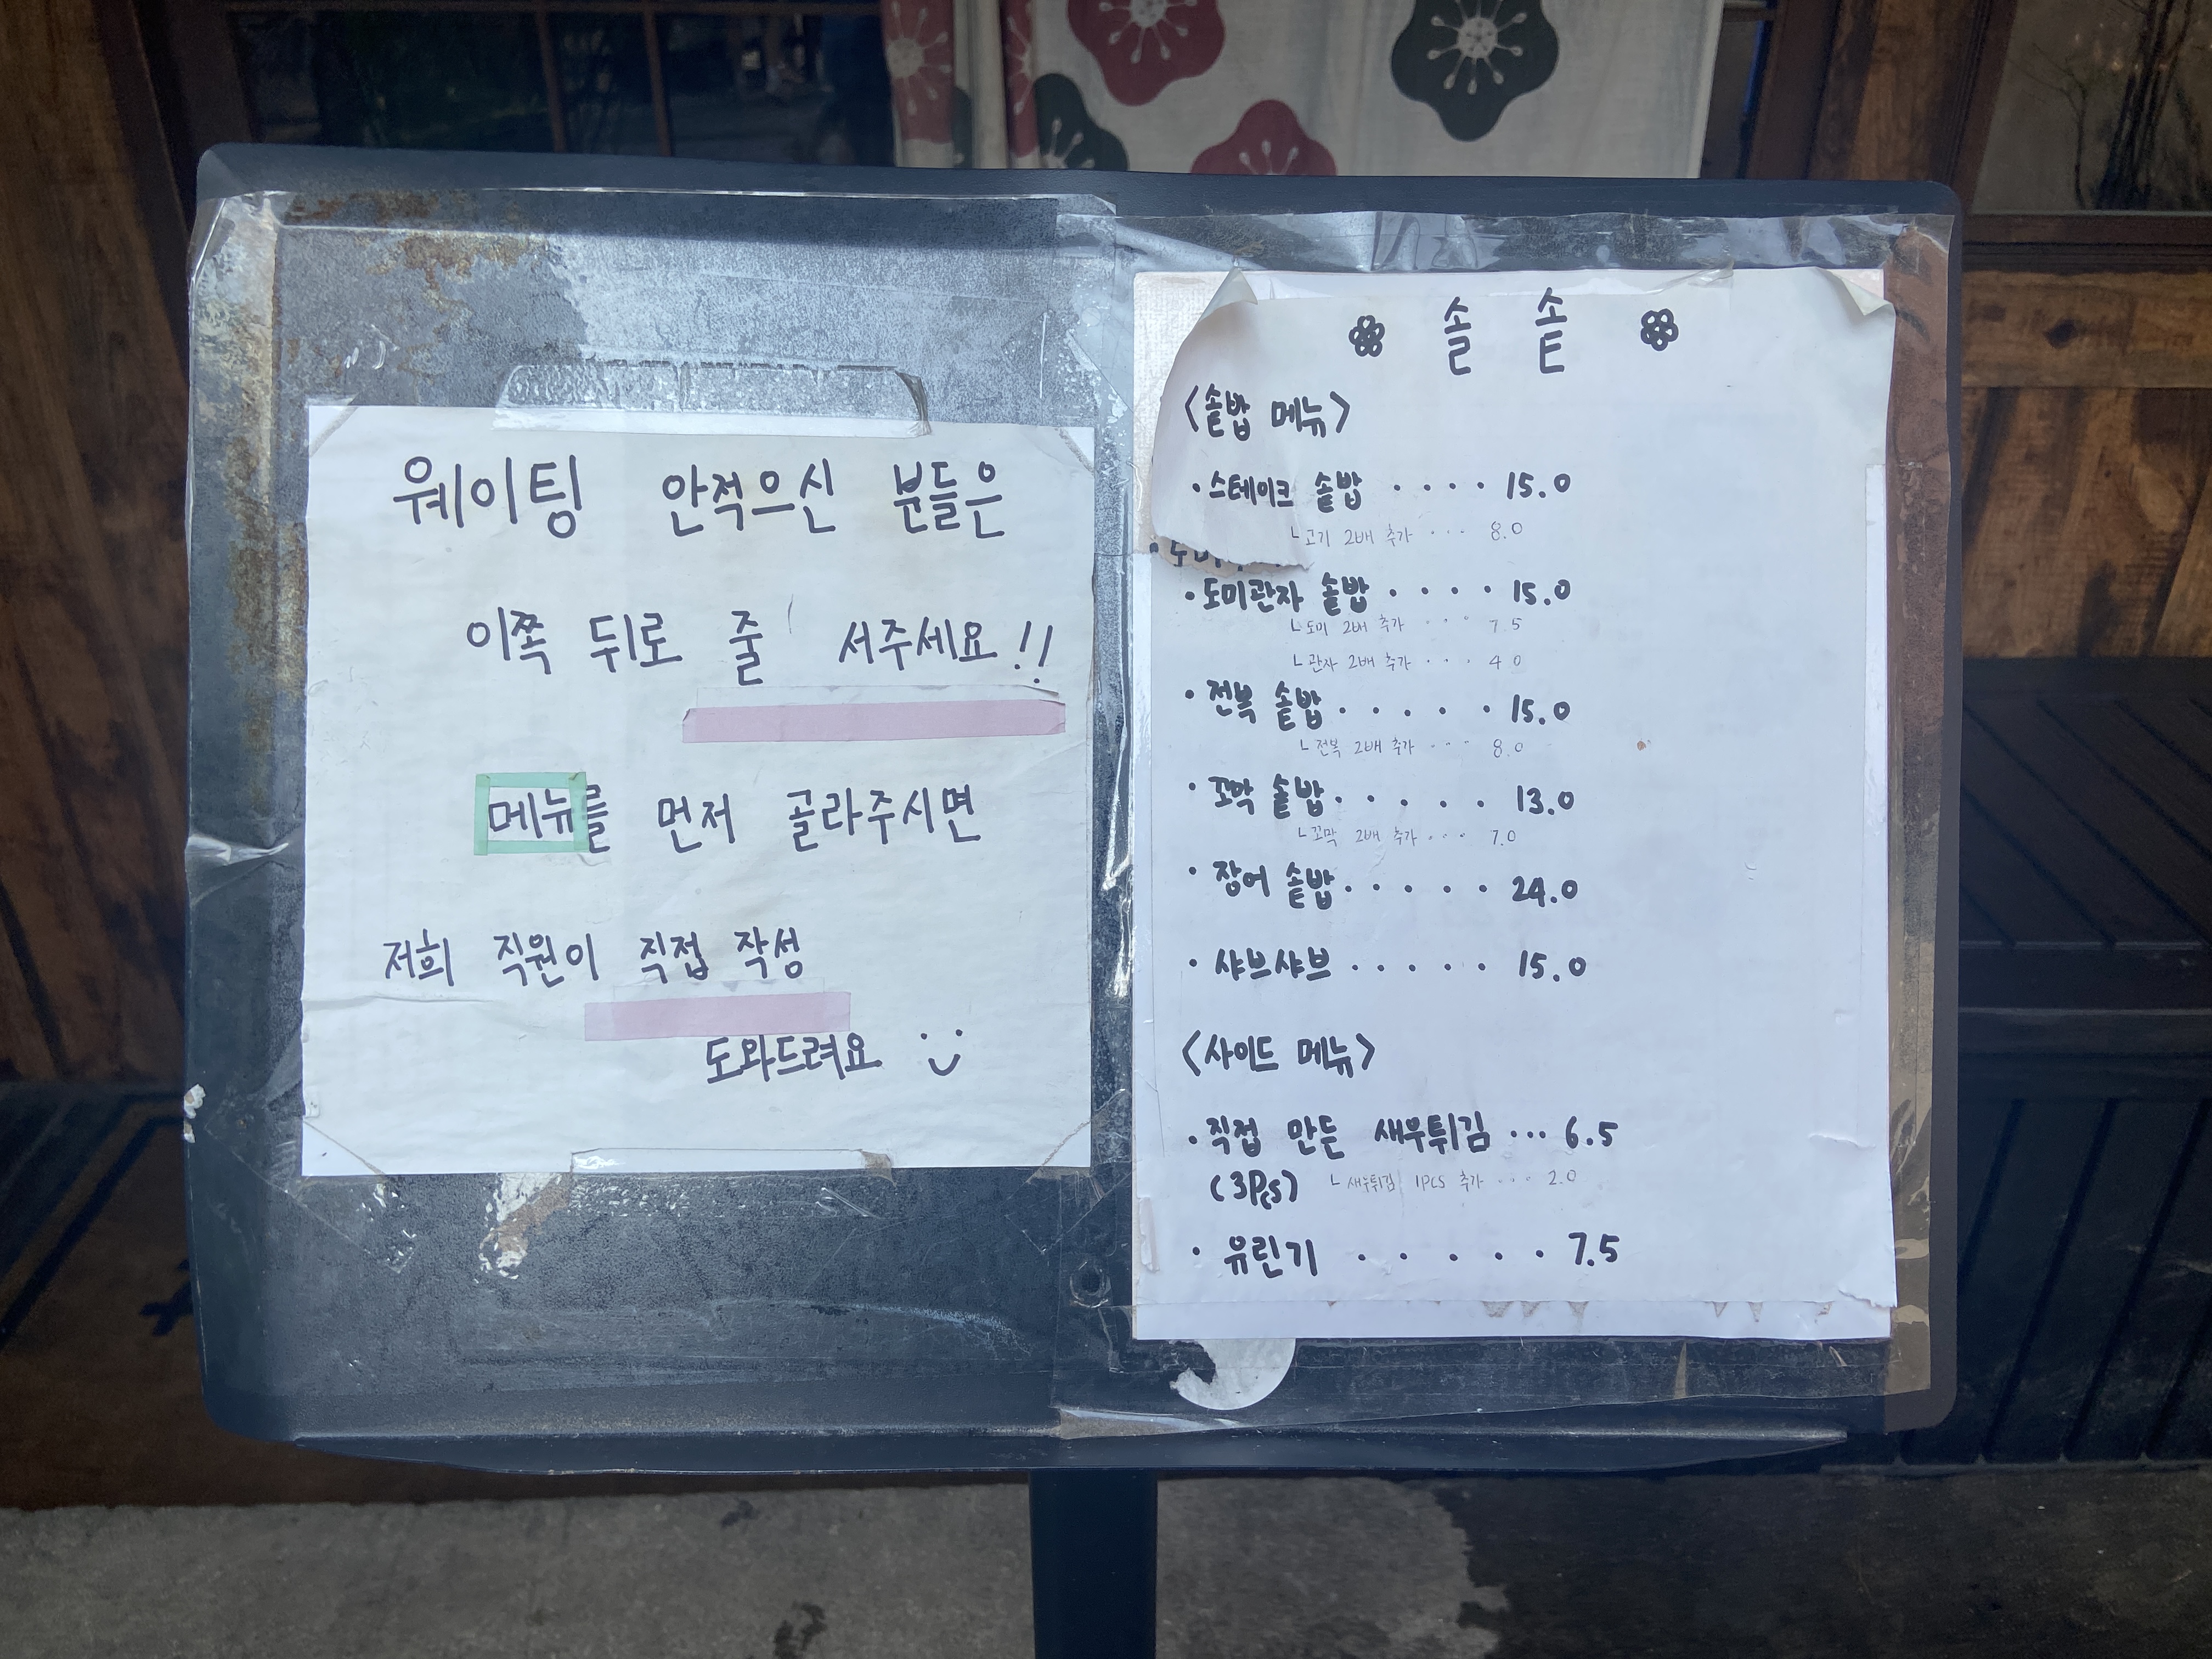 웨이팅 안적으신 분들은
이쪽 뒤로 줄 서주세요!!
메뉴를 먼저 골라주시면
저희 직원이 직접 작성
도와드려요
솔솥
<솥밥 메뉴>
· 스테이크 솥밥 ···· 15.0
ㄴ고기 2배 추가 ··· 8.0
· 도미관자 솥밥 ···· 15.0
ㄴ도미 2배 추가 ··· 7.5
ㄴ관자 2배 추가 ··· 4.0
· 전복 솥밥 ····· 15.0
ㄴ전복 2배 추가 ··· 8.0
· 꼬막 솥밥 ····· 13.0
ㄴ꼬막 2배 추가 ··· 7.0
· 장어 솥밥 ····· 24.0
· 샤브샤브 ····· 15.0
<사이드 메뉴>
· 직접 만든 새우튀김 ··· 6.5
(3Pcs) ㄴ새우튀김 1PCS 추가 ··· 2.0
· 유린기 ····· 7.5